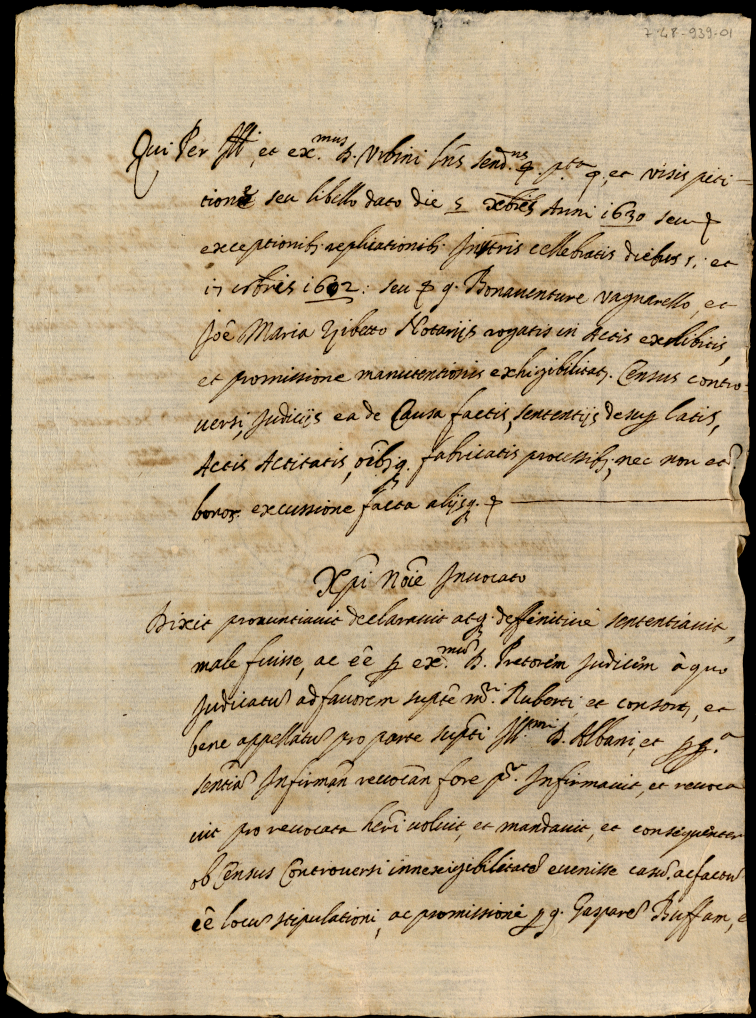 7-LP-939-01
Qui Per Ill. et ex.mus D. Urbini lns send.ns q. p.ta q. et visis peti-
tione seu libello dato die 5 xbris Anni 1630 seu
exceptionib; replicationib; Instris cellebratis diebus 1; et
17 xbris 1602: seu q. Bonaventure Vagnarello, et
Joē Maria Notarijs rogatis in Actis exhibitis,
et promissione manutentionis exhigibilitat. Census contro-
versi, Judicijs ea de Causa factis, sententijs desup latis,
Actis Actitatis, oīb;q. fabricatis processib; nec non et
bonor. excussione facta alijsq.
Xpi Noīe Invocato
Dixit pronuntiavit declaravit atq. deffinitivē sententiavit,
male fuisse, ac ēē p ex.mum D. Pretorem Judicem à quo
Judicatū ad favorem suptē m.ri Ruberti et consort, et
bene appellatū pro parte supti Ill.mi D. Albani, et
sentiā Infirman revocan fore Infirmavit, et revoca
vit pro revocata heri voluit, et mandavit, et consequenter
ob Census Controversi innexigibilitatē evenisse casū, ac factū
ēē locū stipulationi, ac promissionē p q. Gasparē Buffam, e